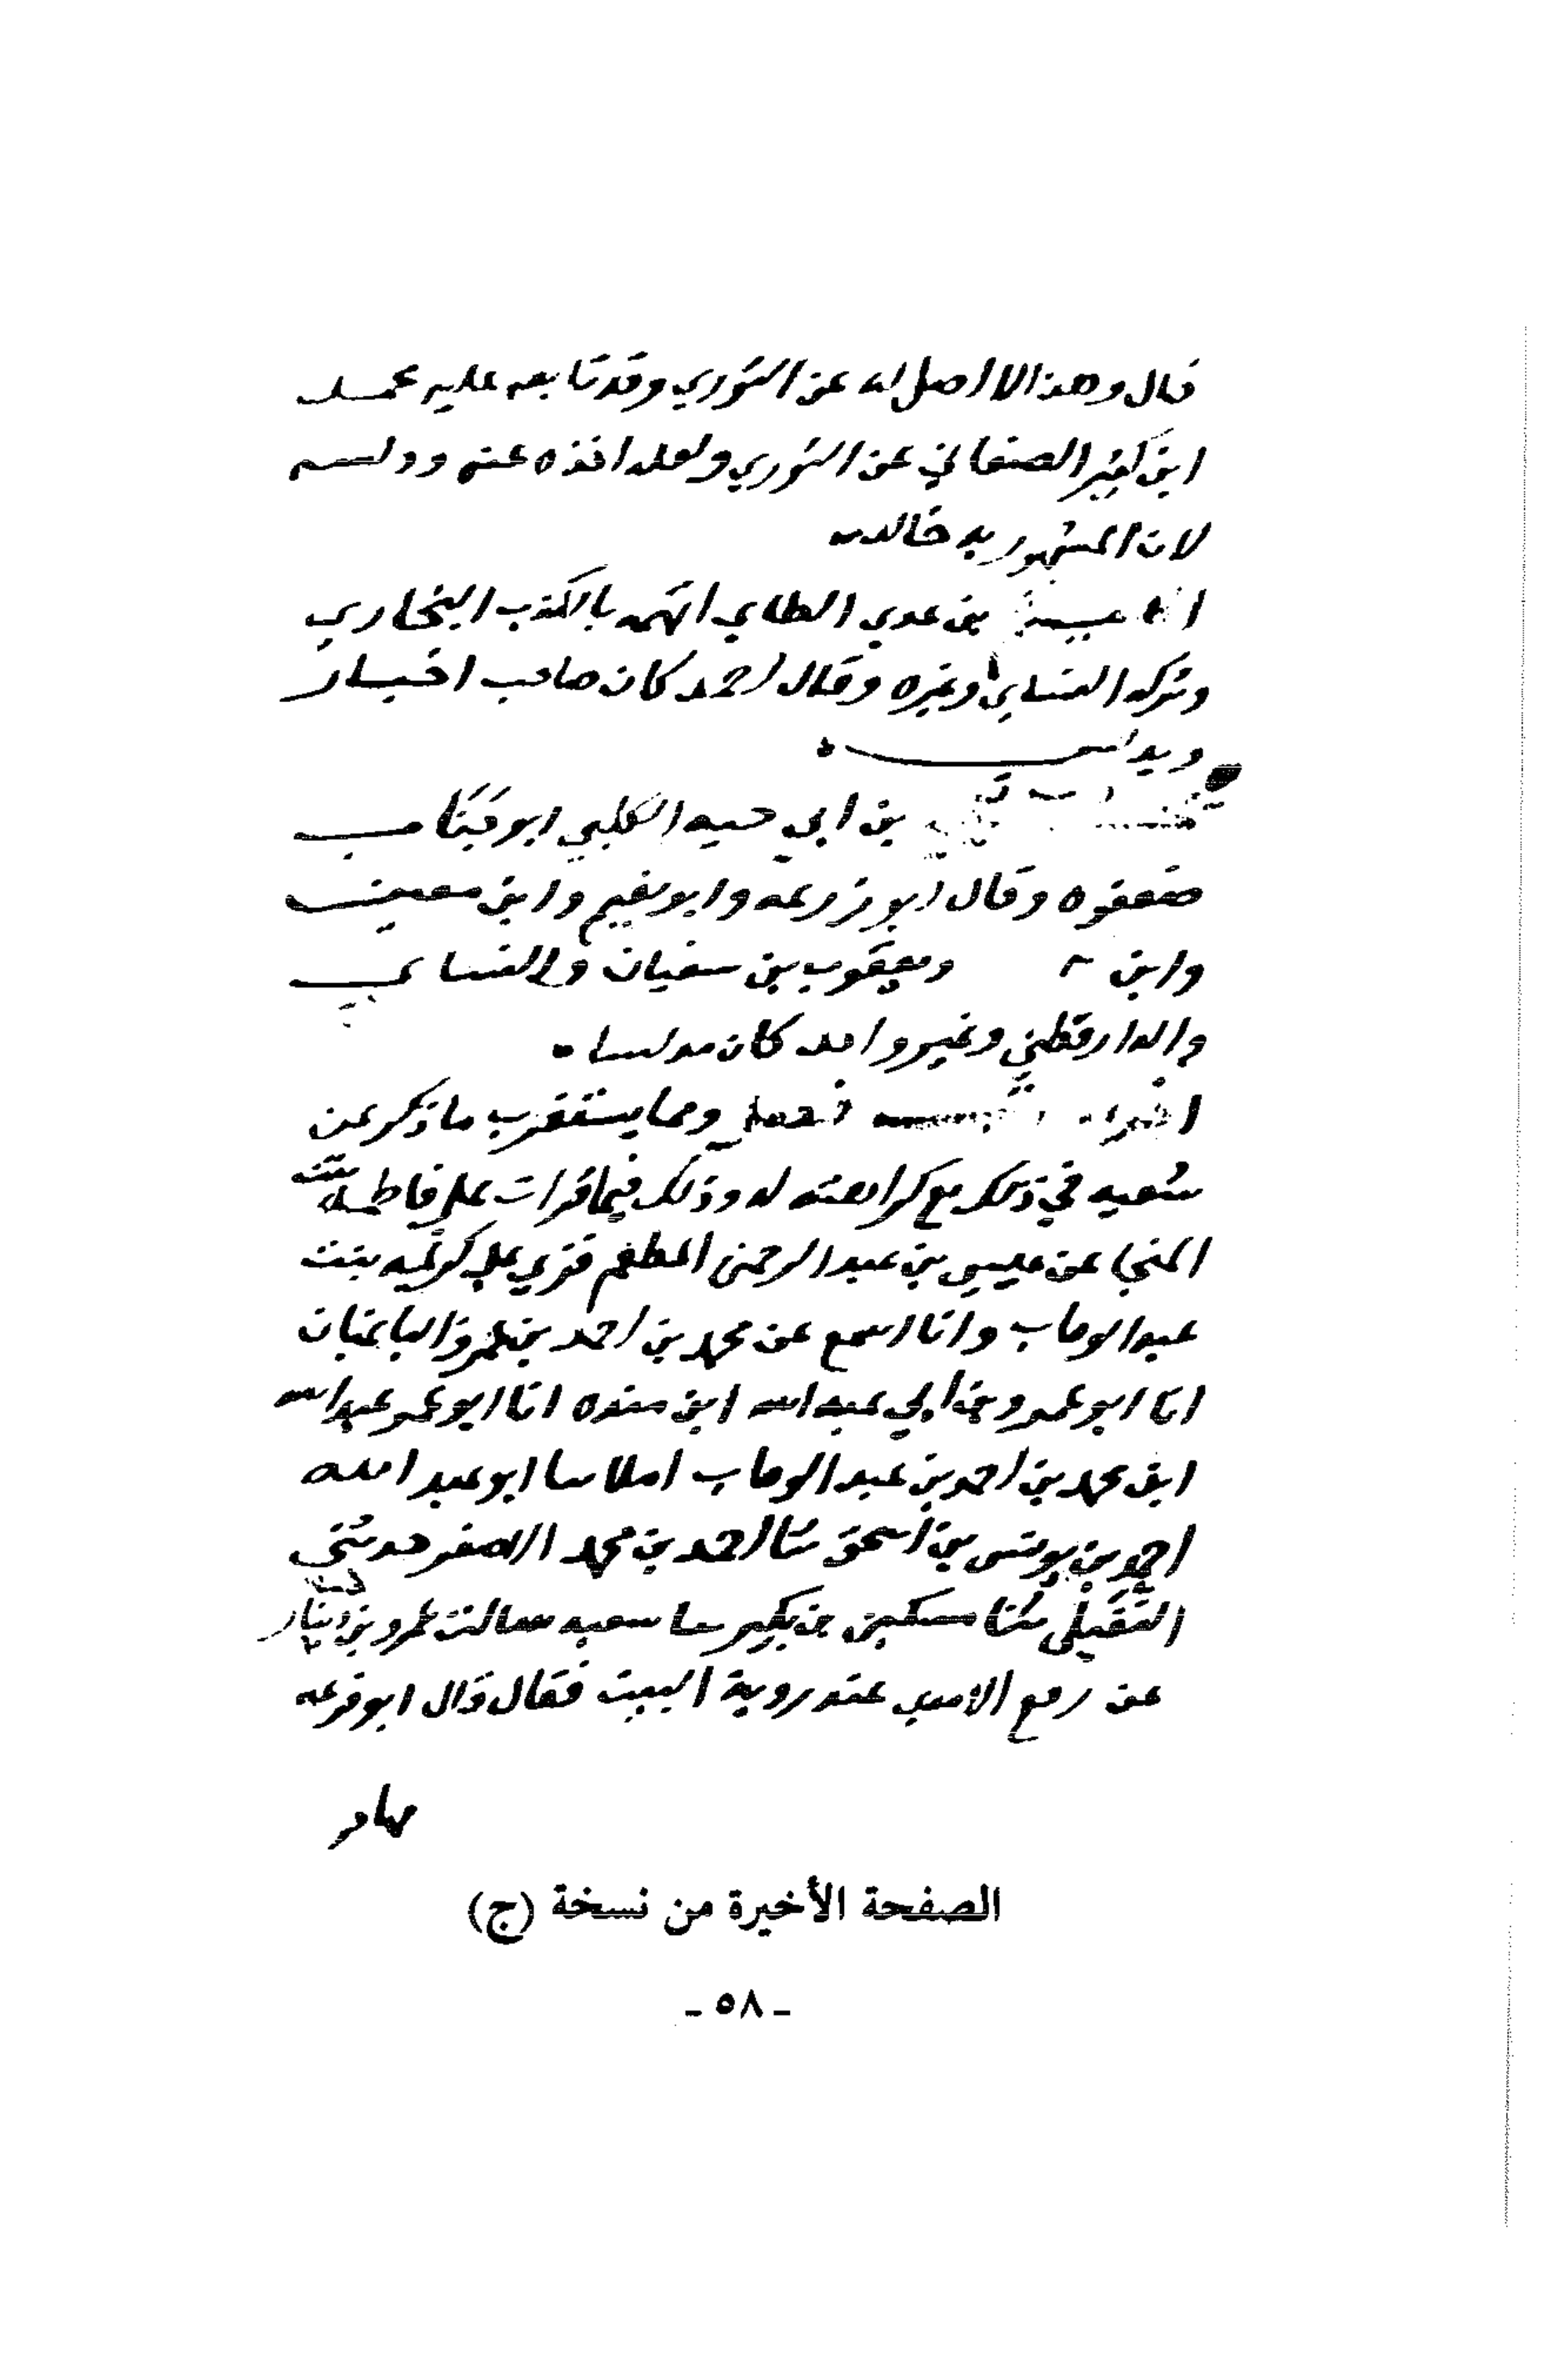 قال وهذا لا اصل له عن الثوري وقد تابعه عليه محمد
ابن كثير الصنعاني عن الثوري ولعله اخذه عنه ودلسه
لان المشهور به خالد
بن عدي الطاي اتهمه بالكذب البخاري
وتركه النساي وغيره وقال احمد كان صاحب اخبار
ويدلس
بن ابي حيه الكلبي ابو جناب
ضعفوه وقال ابو زرعه وابو نعيم وابن معين
وابن ويعقوب بن سفيان والنساي
والدارقطني وغير واحد كان مدلسا
فصل ومما يستغرب ما ذكر عن
شعبه في ذلك مع كراهته له وذلك فيما قرات على فاطمة بنت
المنجا عن عيسى بن عبد الرحمن المطعم قري على كريمه بنت
عبد الوهاب وانا اسمع عن محمد بن احمد بن عمر الباغبان
انا ابو عمرو بن ابي عبد الله ابن منده انا ابو عمر عبد الله
ابن محمد بن احمد بن عبد الوهاب املا سا ابو عبد الله
احمد بن يونس بن اسحق ثنا احمد بن محمد الاصفر حدثني
النفيلي ثنا مسكين بن بكير سا سعبه سالت عمرو بن دينار
عن رفع الايدي عند روية البيت فقال قال ابو قزعه
مهاجر
الصفحة الأخيرة من نسخة (ج)
- ٥٨ -